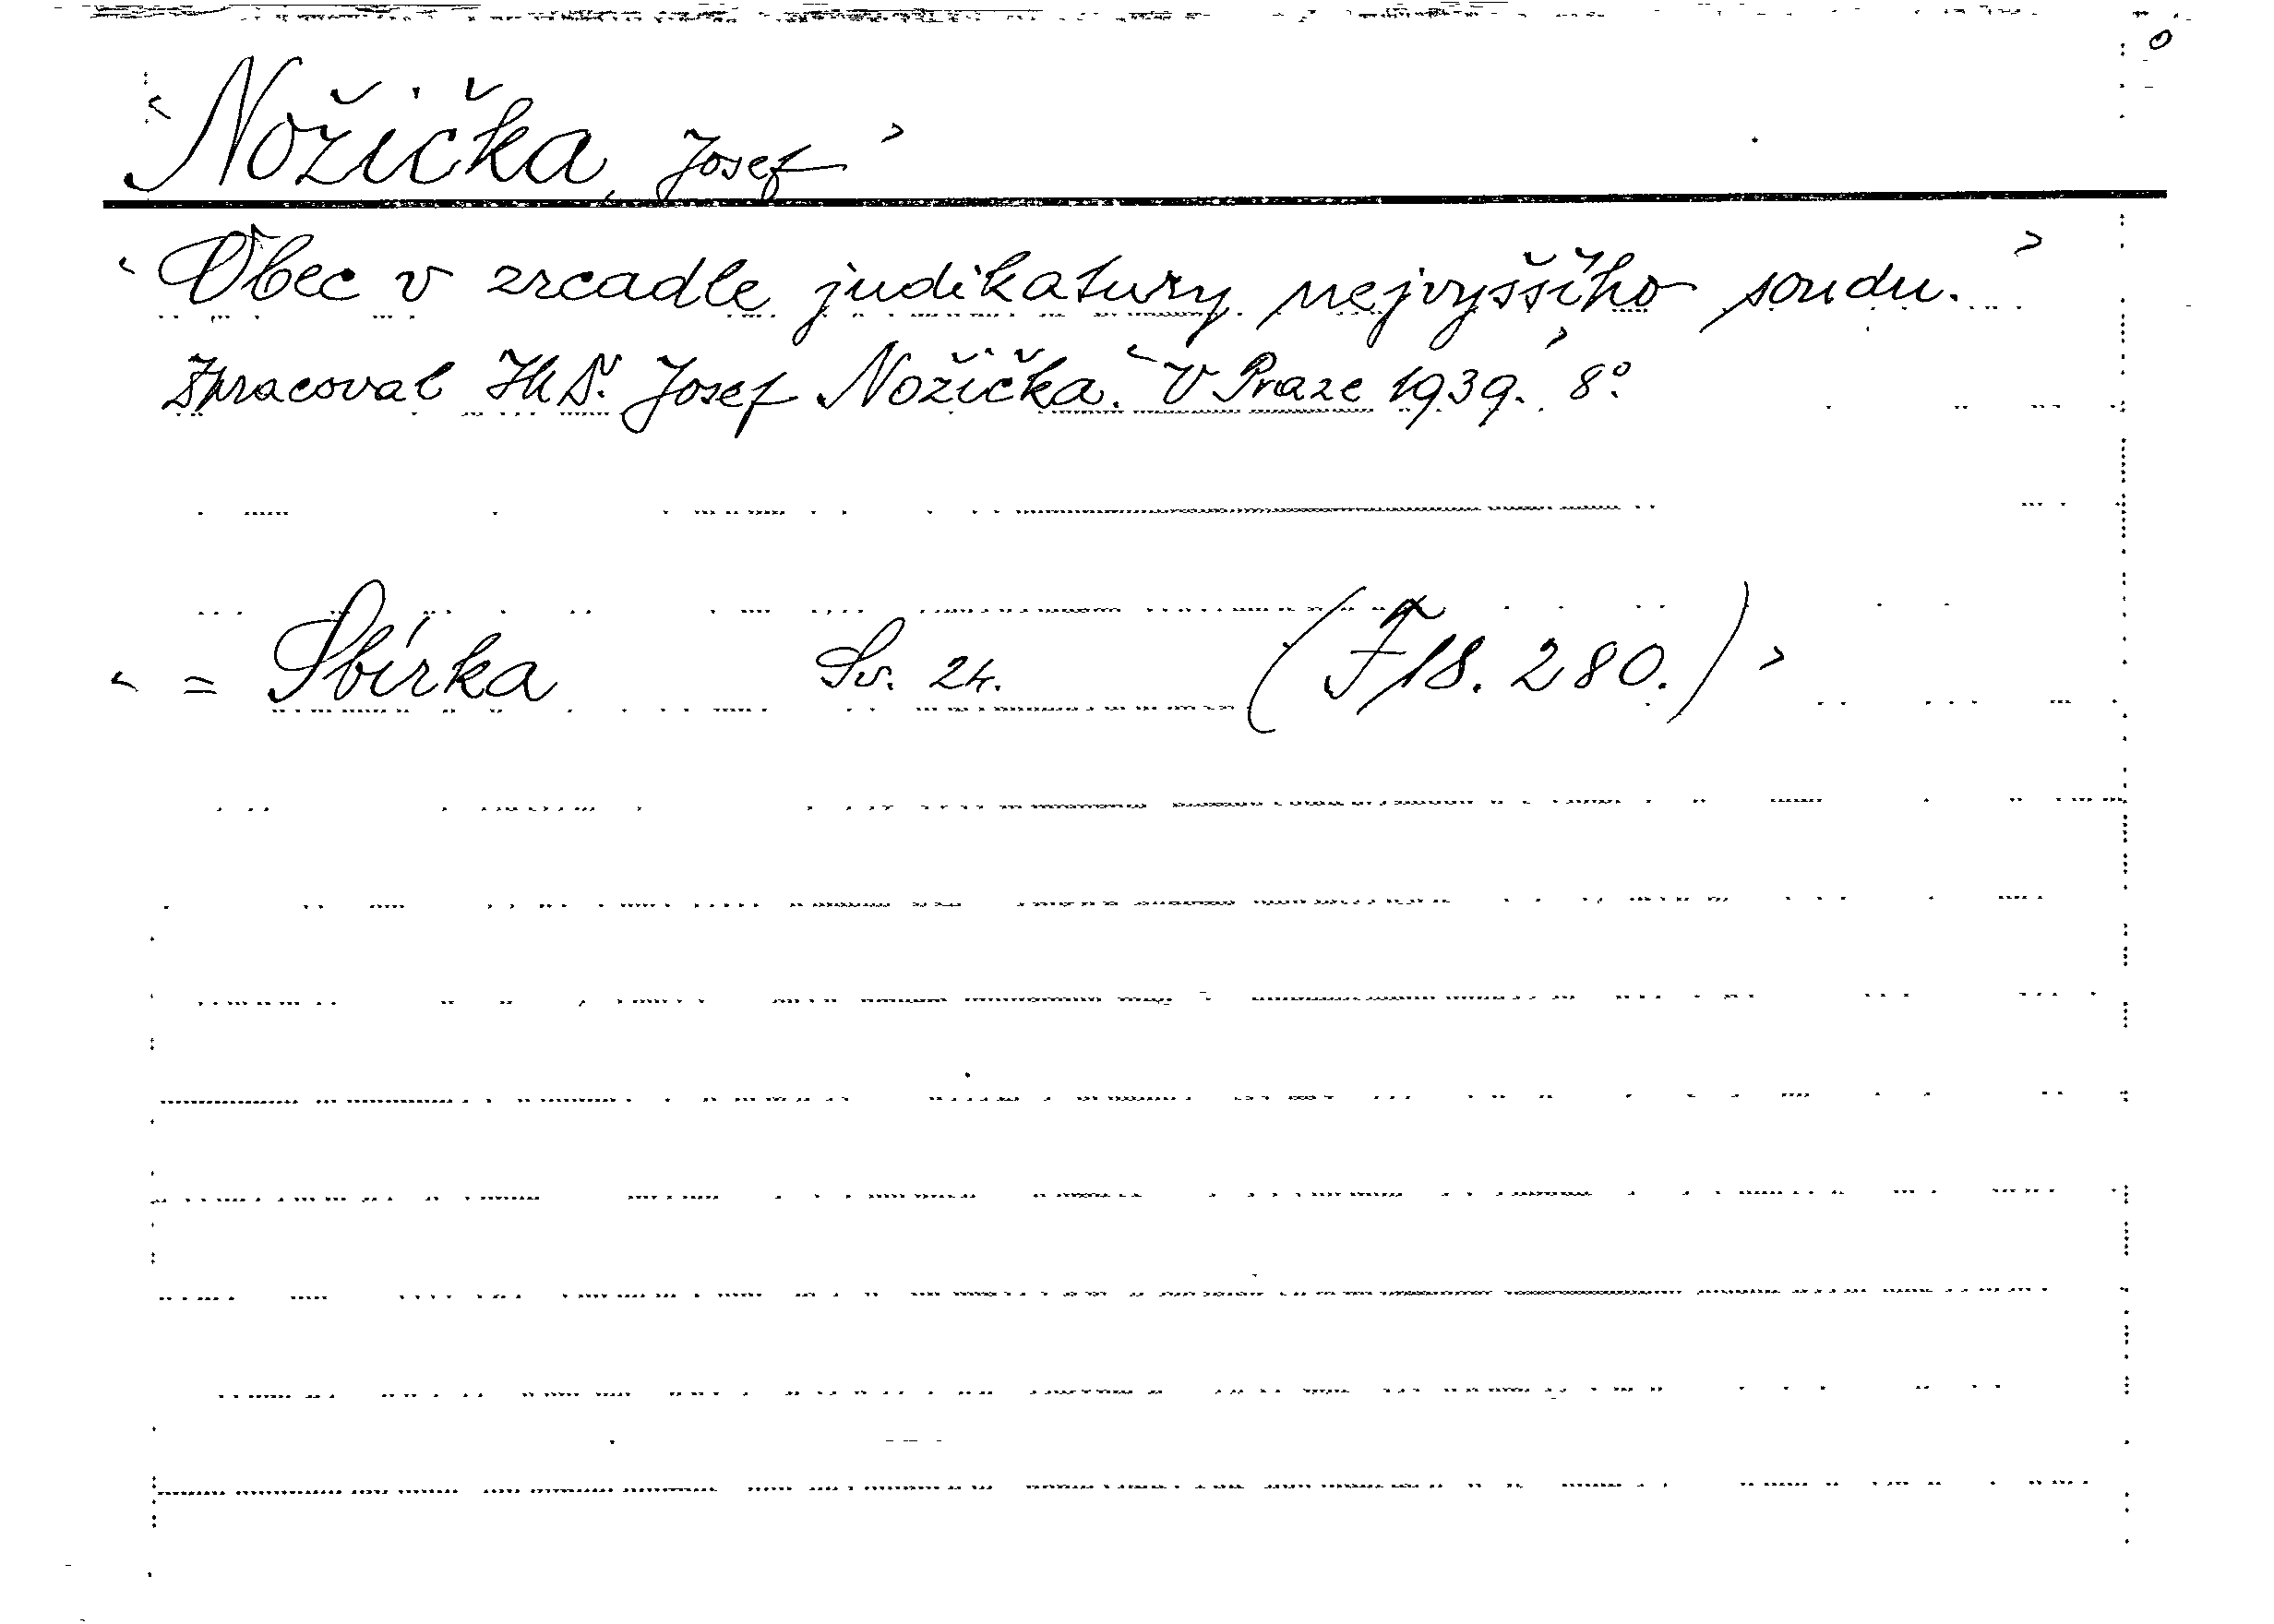 ‹Nožička, Josef›
‹Obec v zrcadle judikatury nejvyššího soudu.›
Zpracoval JUDr. Josef Nožička. ‹V Praze 1939.› 8°.
‹= Sbírka Sv. 24. (F 18. 280.)›